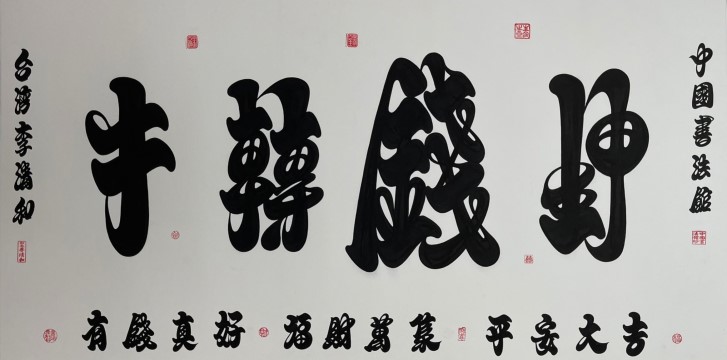 牛轉錢坤
中國書法館
台灣李清和
有錢真好 福財萬 平安大吉